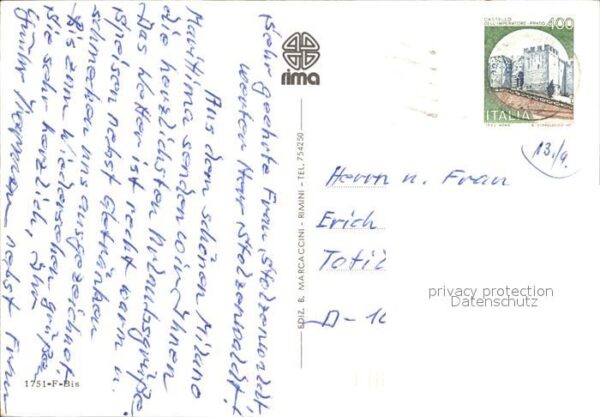 Sehr geehrte Frau Stolzenwaldt,
werter Herr Stolzenwaldt!
Aus dem schönen Milano
Marittima senden wir Ihnen
die herzlichsten Urlaubsgrüße.
Das Wetter ist recht warm u.
Speisen nebst Getränken
schmecken uns ausgezeichnet
Bis zum Wiedersehen grüßen
Sie sehr herzlich, Ihr
nebst Frau
1751-F-Bis
rima
EDIZ. B. MARCACCINI - RIMINI - TEL. 754250
CASTELLO
DELL'IMPERATORE - PRATO 400
ITALIA
13./9.
Herrn u. Frau
Erich
D-1
privacy protection
Datenschutz